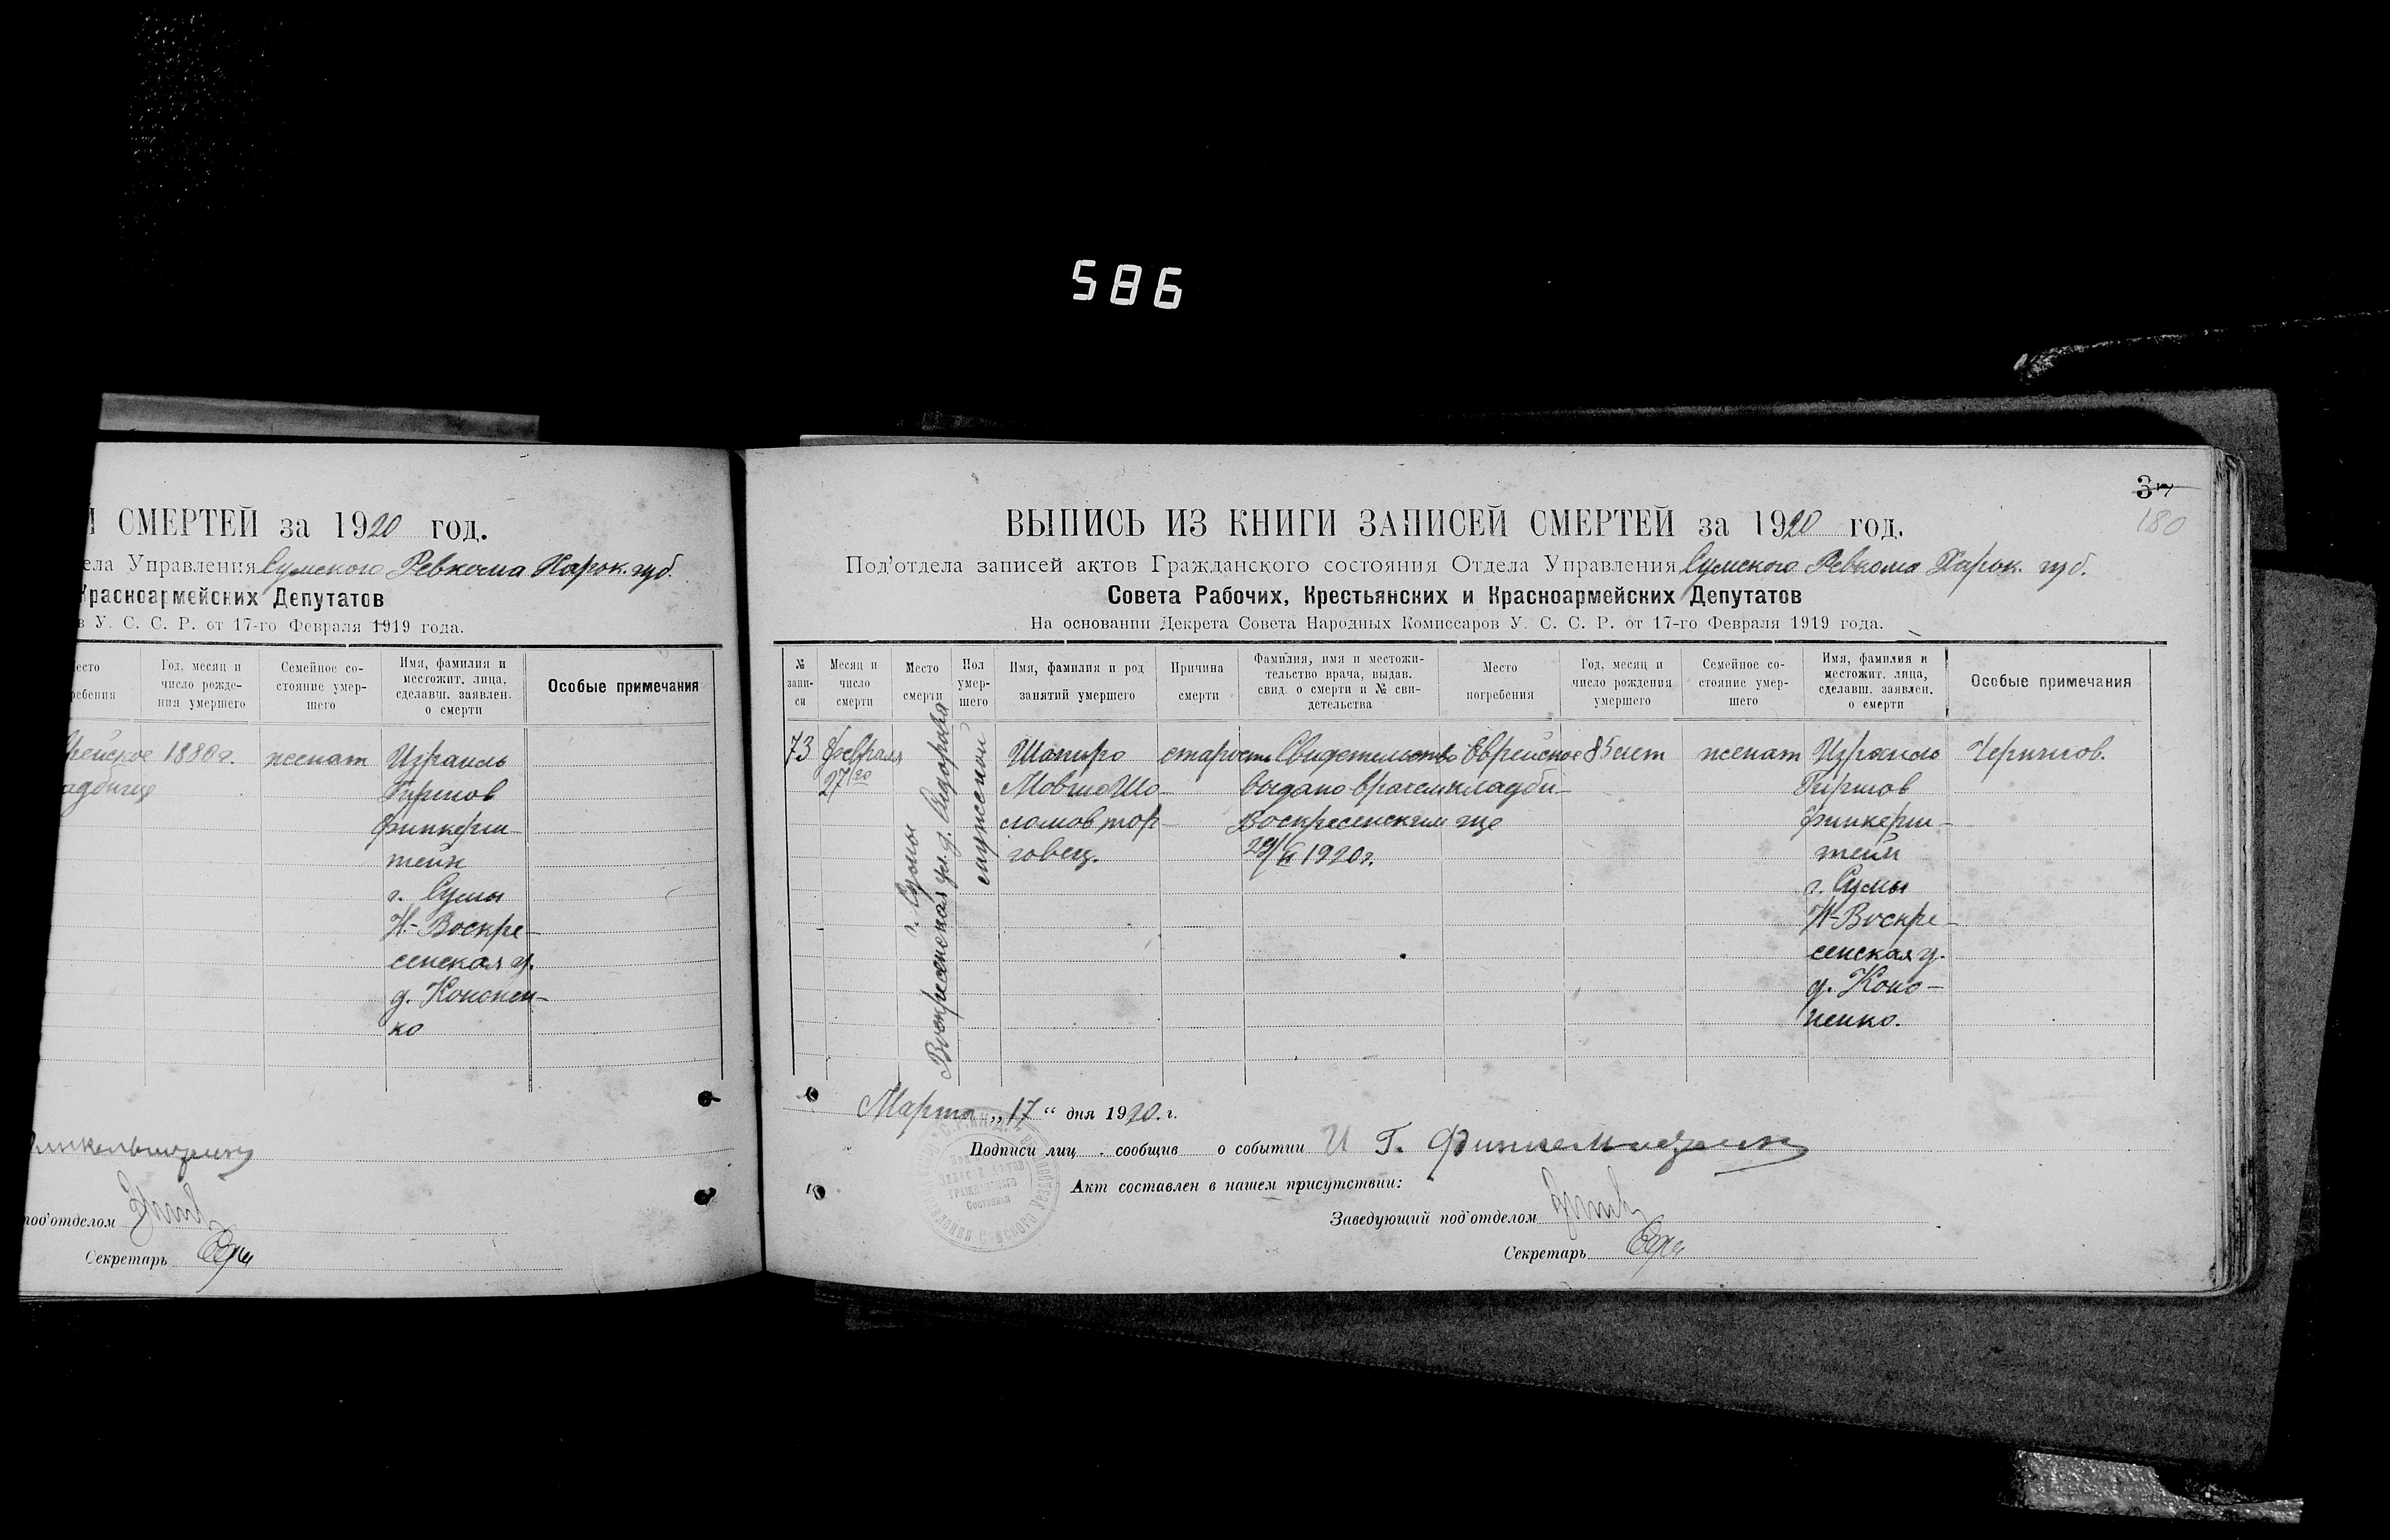 586
СМЕРТЕЙ за 1920 год.
ела Управления Сумского Ревкома Харьк. губ.
Красноармейских Депутатов
в У. С. С. Р. от 17-го Февраля 1919 года.
есто
ребения
Год, месяц и
число рожде-
ния умершего
Семейное со-
стояние умер-
шего
Имя, фамилия и
местожит. лица,
сделавш. заявлен.
о смерти
Особые примечания
рейское 1880 г. женат Израиль
адбище Гиршов
Финкерш-
тейн
г. Сумы
Н-Воскре-
сенская у.
д. Кононен-
ко
под'отделом
Секретарь
37
180
ВЫПИСЬ ИЗ КНИГИ ЗАПИСЕЙ СМЕРТЕЙ за 1920 год.
Под'отдела записей актов Гражданского состояния Отдела Управления Сумского Ревкома Харьк. губ.
Совета Рабочих, Крестьянских и Красноармейских Депутатов
На основании Декрета Совета Народных Комиссаров У. С. С. Р. от 17-го Февраля 1919 года.
№
запи-
си
Месяц и
число
смерти
Место
смерти
Пол
умер-
шего
Имя, фамилия и род
занятий умершего
Причина
смерти
Фамилия, имя и местожи-
тельство врача, выдав.
свид. о смерти и № сви-
детельства
Место
погребения
Год, месяц и
число рождения
умершего
Семейное со-
стояние умер-
шего
Имя, фамилия и
местожит. лица,
сделавш. заявлен.
о смерти
Особые примечания
73
Февраля
27/20
г. Сумы
Воскресенская ул. д. Сидорова
мужеской
Шапиро
Мовша Шо-
ломов тор-
говец.
старость
Свидетельство
выдано врачем
Воскресенским
29/II 1920 г.
Еврейское
кладби-
ще
85 лет
женат
Израиль
Гиршов
Финкерш-
тейн
г. Сумы
Н-Воскре-
сенская у.
д. Коно-
ненко.
Чернигов.
Марта „17“ дня 1920. г.
Подписи лиц сообщив о событии И Г.
Акт составлен в нашем присутствии:
Заведующий под'отделом
Секретарь